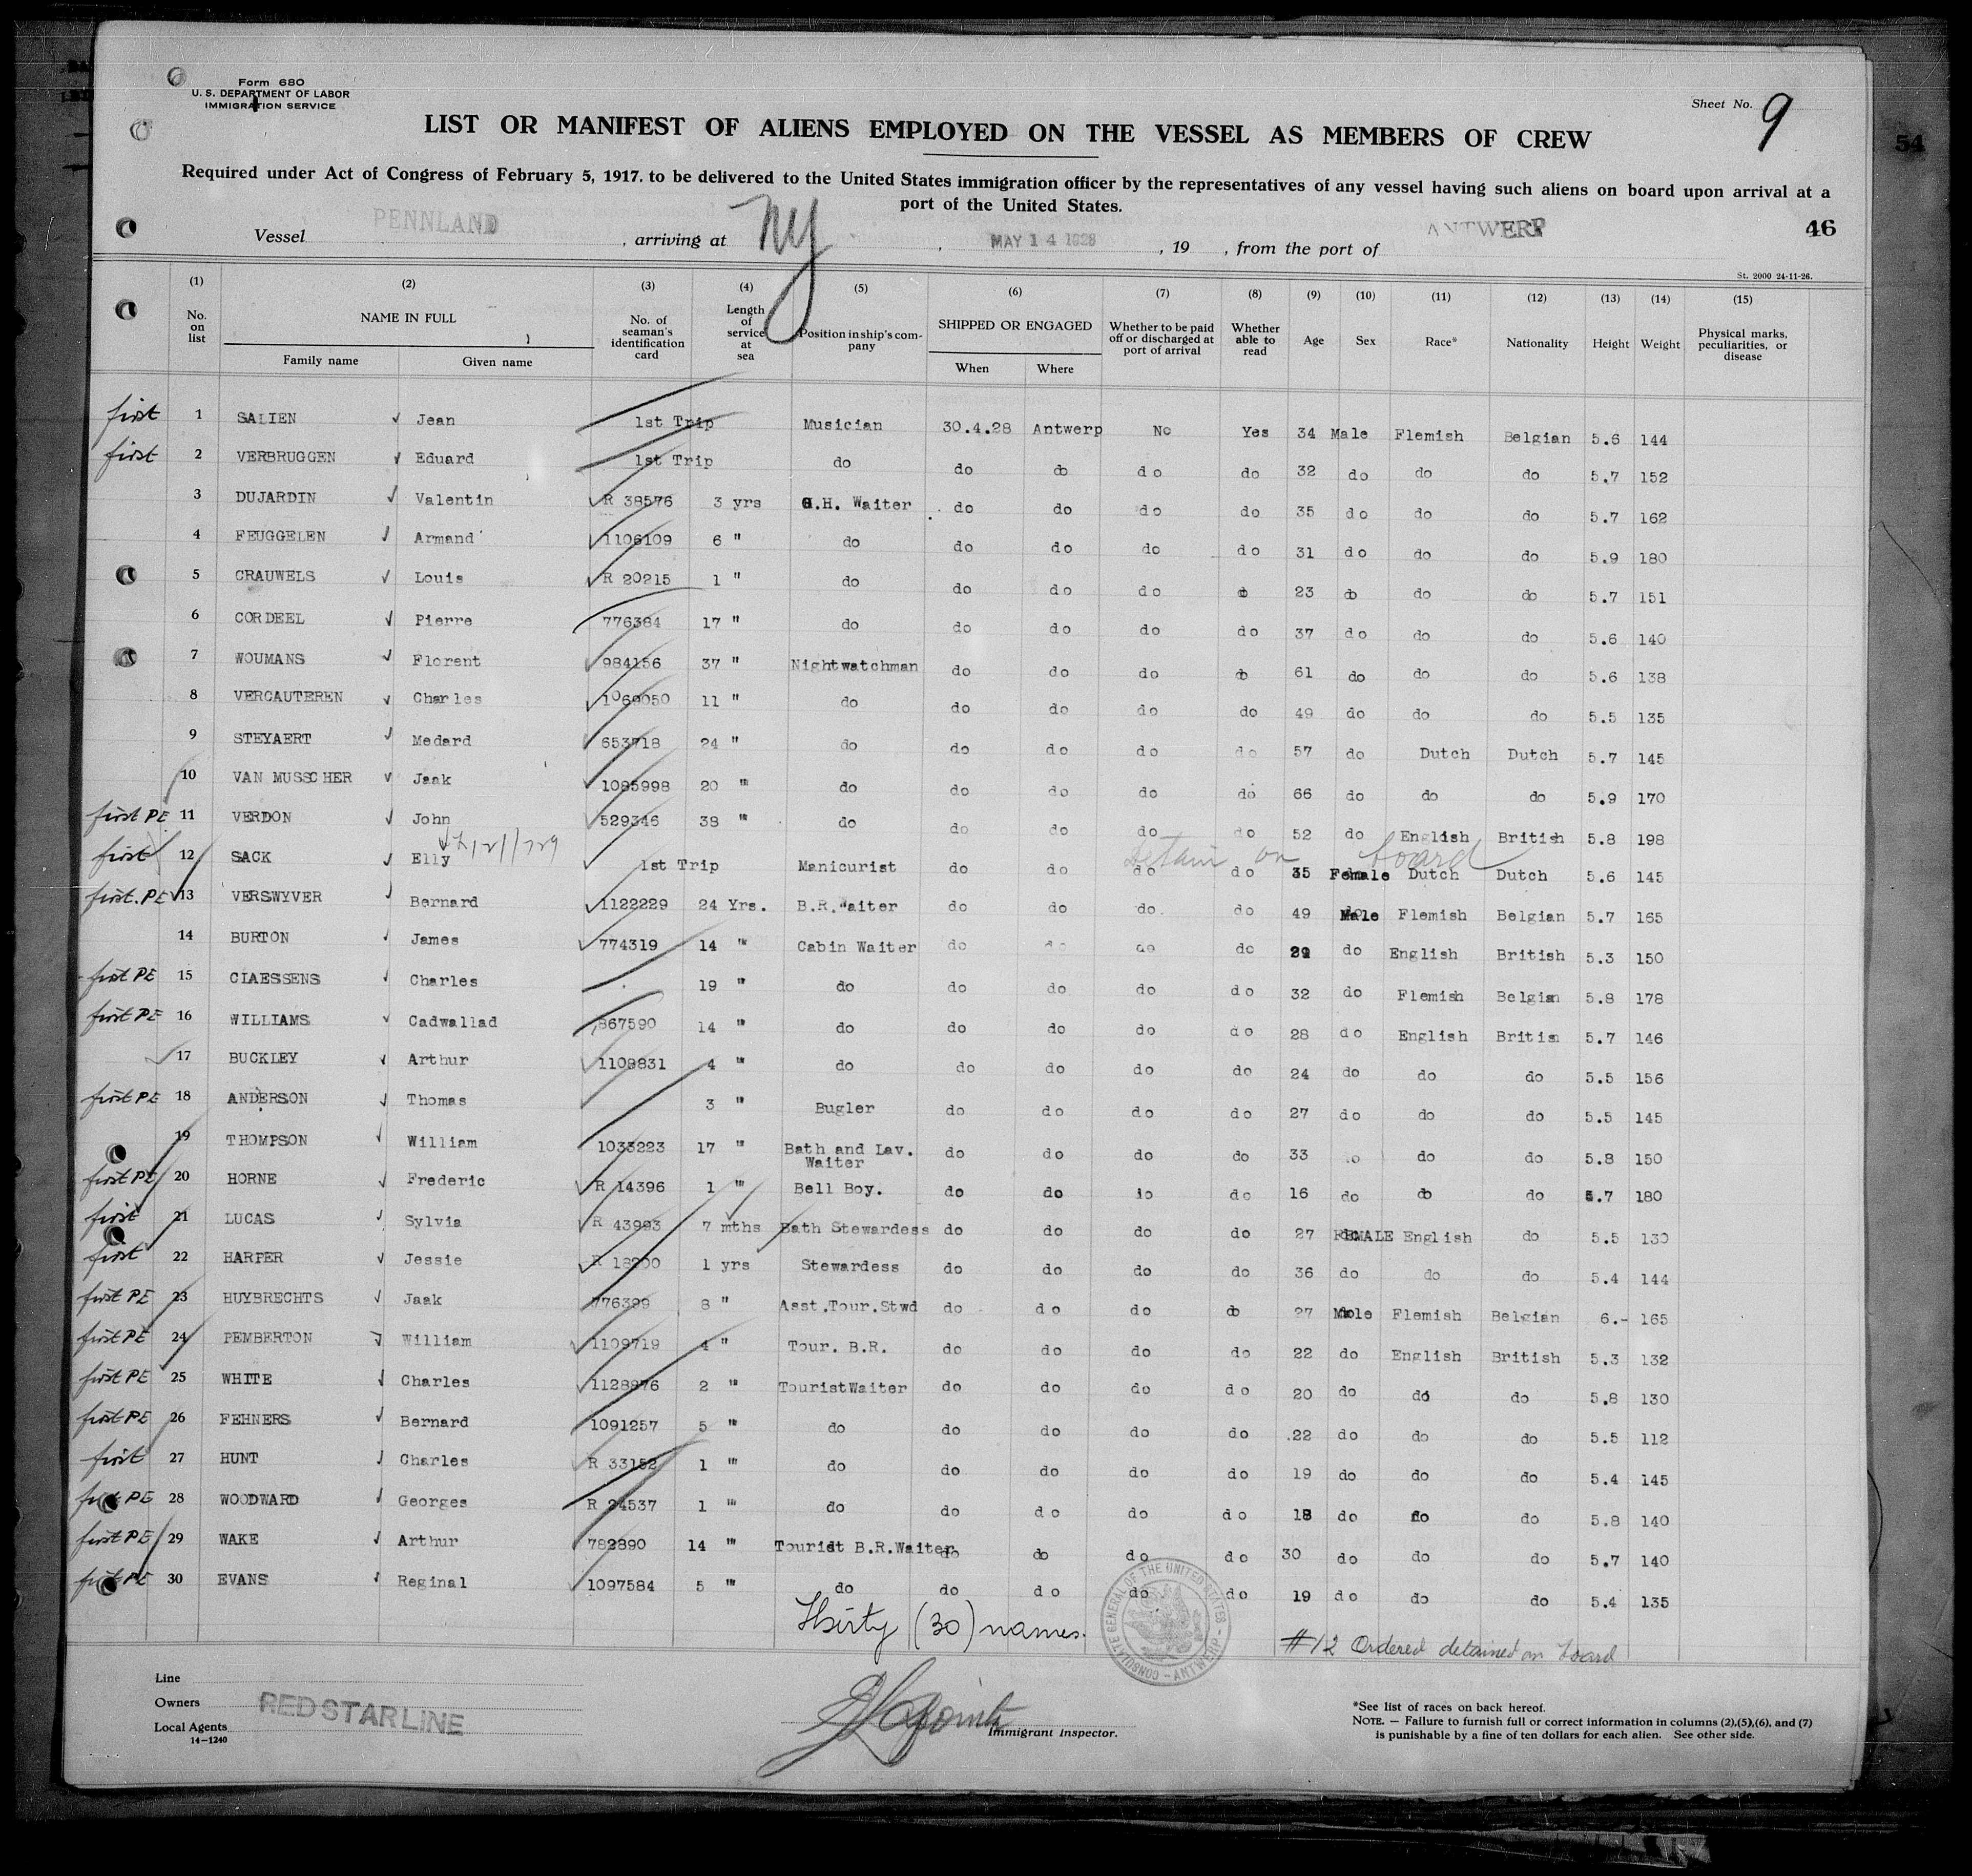 Form 680
U. S. DEPARTMENT OF LABOR
IMMIGRATION SERVICE
Sheet No. 9
54
LIST OR MANIFEST OF ALIENS EMPLOYED ON THE VESSEL AS MEMBERS OF CREW
Required under Act of Congress of February 5, 1917. to be delivered to the United States immigration officer by the representatives of any vessel having such aliens on board upon arrival at a
port of the United States.
46
Vessel PENNLAND , arriving at NY , MAY 14 1928 , 19 , from the port of ANTWERP
St. 2000 24-11-26.
(1) (2) (3) (4) (5) (6) (7) (8) (9) (10) (11) (12) (13) (14) (15)
No. on list NAME IN FULL Family name Given name No. of seaman's identification card Length of service at sea Position in ship's company SHIPPED OR ENGAGED When Where Whether to be paid off or discharged at port of arrival Whether able to read Age Sex Race* Nationality Height Weight Physical marks, peculiarities, or disease
first 1 SALIEN Jean 1st Trip Musician 30.4.28 Antwerp No Yes 34 Male Flemish Belgian 5.6 144
first 2 VERBRUGGEN Eduard 1st Trip do do do do do 32 do do do 5.7 152
3 DUJARDIN Valentin R 38576 3 yrs G.H. Waiter do do do do 35 do do do 5.7 162
4 FEUGGELEN Armand 1106109 6 " do do do do do 31 do do do 5.9 180
5 CRAUWELS Louis R 20215 1 " do do do do do 23 do do do 5.7 151
6 CORDEEL Pierre 776384 17 " do do do do do 37 do do do 5.6 140
7 WOUMANS Florent 984156 37 " Nightwatchman do do do do 61 do do do 5.6 138
8 VERCAUTEREN Charles 1060050 11 " do do do do do 49 do do do 5.5 135
9 STEYAERT Medard 653718 24 " do do do do do 57 do Dutch Dutch 5.7 145
10 VAN MUSSCHER Jaak 1085998 20 " do do do do do 66 do do do 5.9 170
first PE 11 VERDON John 529346 38 " do do do do do 52 do English British 5.8 198
Detain on board
first 12 SACK Elly 1st Trip Manicurist do do do do 35 Female Dutch Dutch 5.6 145
first. PE 13 VERSWYVER Bernard 1122229 24 Yrs. B.R.Waiter do do do. do 49 Male Flemish Belgian 5.7 165
14 BURTON James 774319 14 " Cabin Waiter do do do do do English British 5.3 150
first PE 15 CLAESSENS Charles 19 " do do do do do 32 do Flemish Belgian 5.8 178
first PE 16 WILLIAMS Cadwallad 867590 14 " do do do do do 28 do English British 5.7 146
17 BUCKLEY Arthur 1109831 4 " do do do do do 24 do do do 5.5 156
first PE 18 ANDERSON Thomas 3 " Bugler do do do do 27 do do do 5.5 145
19 THOMPSON William 1033223 17 " Bath and Lav. Waiter do do do do 33 do do do 5.8 150
first PE 20 HORNE Frederic R 14396 1 " Bell Boy. do do do do 16 do do do 5.7 180
first 21 LUCAS Sylvia R 43993 7 mths Bath Stewardess do do do do 27 FEMALE English do 5.5 130
first 22 HARPER Jessie R 18200 1 yrs Stewardess do do do do 36 do do do 5.4 144
first PE 23 HUYBRECHTS Jaak 776399 8 " Asst.Tour.Stwd do do do do 27 Male Flemish Belgian 6.- 165
first PE 24 PEMBERTON William 1109719 4 " Tour. B.R. do do do do 22 do English British 5.3 132
first PE 25 WHITE Charles 1128876 2 " TouristWaiter do do do do 20 do do do 5.8 130
first PE 26 FEHNERS Bernard 1091257 5 " do do do do do 22 do do do 5.5 112
first 27 HUNT Charles R 33152 1 " do do do do do 19 do do do 5.4 145
first PE 28 WOODWARD Georges R 24537 1 " do do do do do 18 do do do 5.8 140
first PE 29 WAKE Arthur 782890 14 " Tourist B.R.Waiter do do do do 30 do do do 5.7 140
first PE 30 EVANS Reginal 1097584 5 " do do do do do 19 do do do 5.4 135
Thirty (30) names.
CONSULATE GENERAL OF THE UNITED STATES - ANTWERP -
#12 Ordered detained on board
Line
Owners
Local Agents
RED STAR LINE
14-1240
Immigrant Inspector.
*See list of races on back hereof.
NOTE. — Failure to furnish full or correct information in columns (2),(5),(6), and (7)
is punishable by a fine of ten dollars for each alien. See other side.